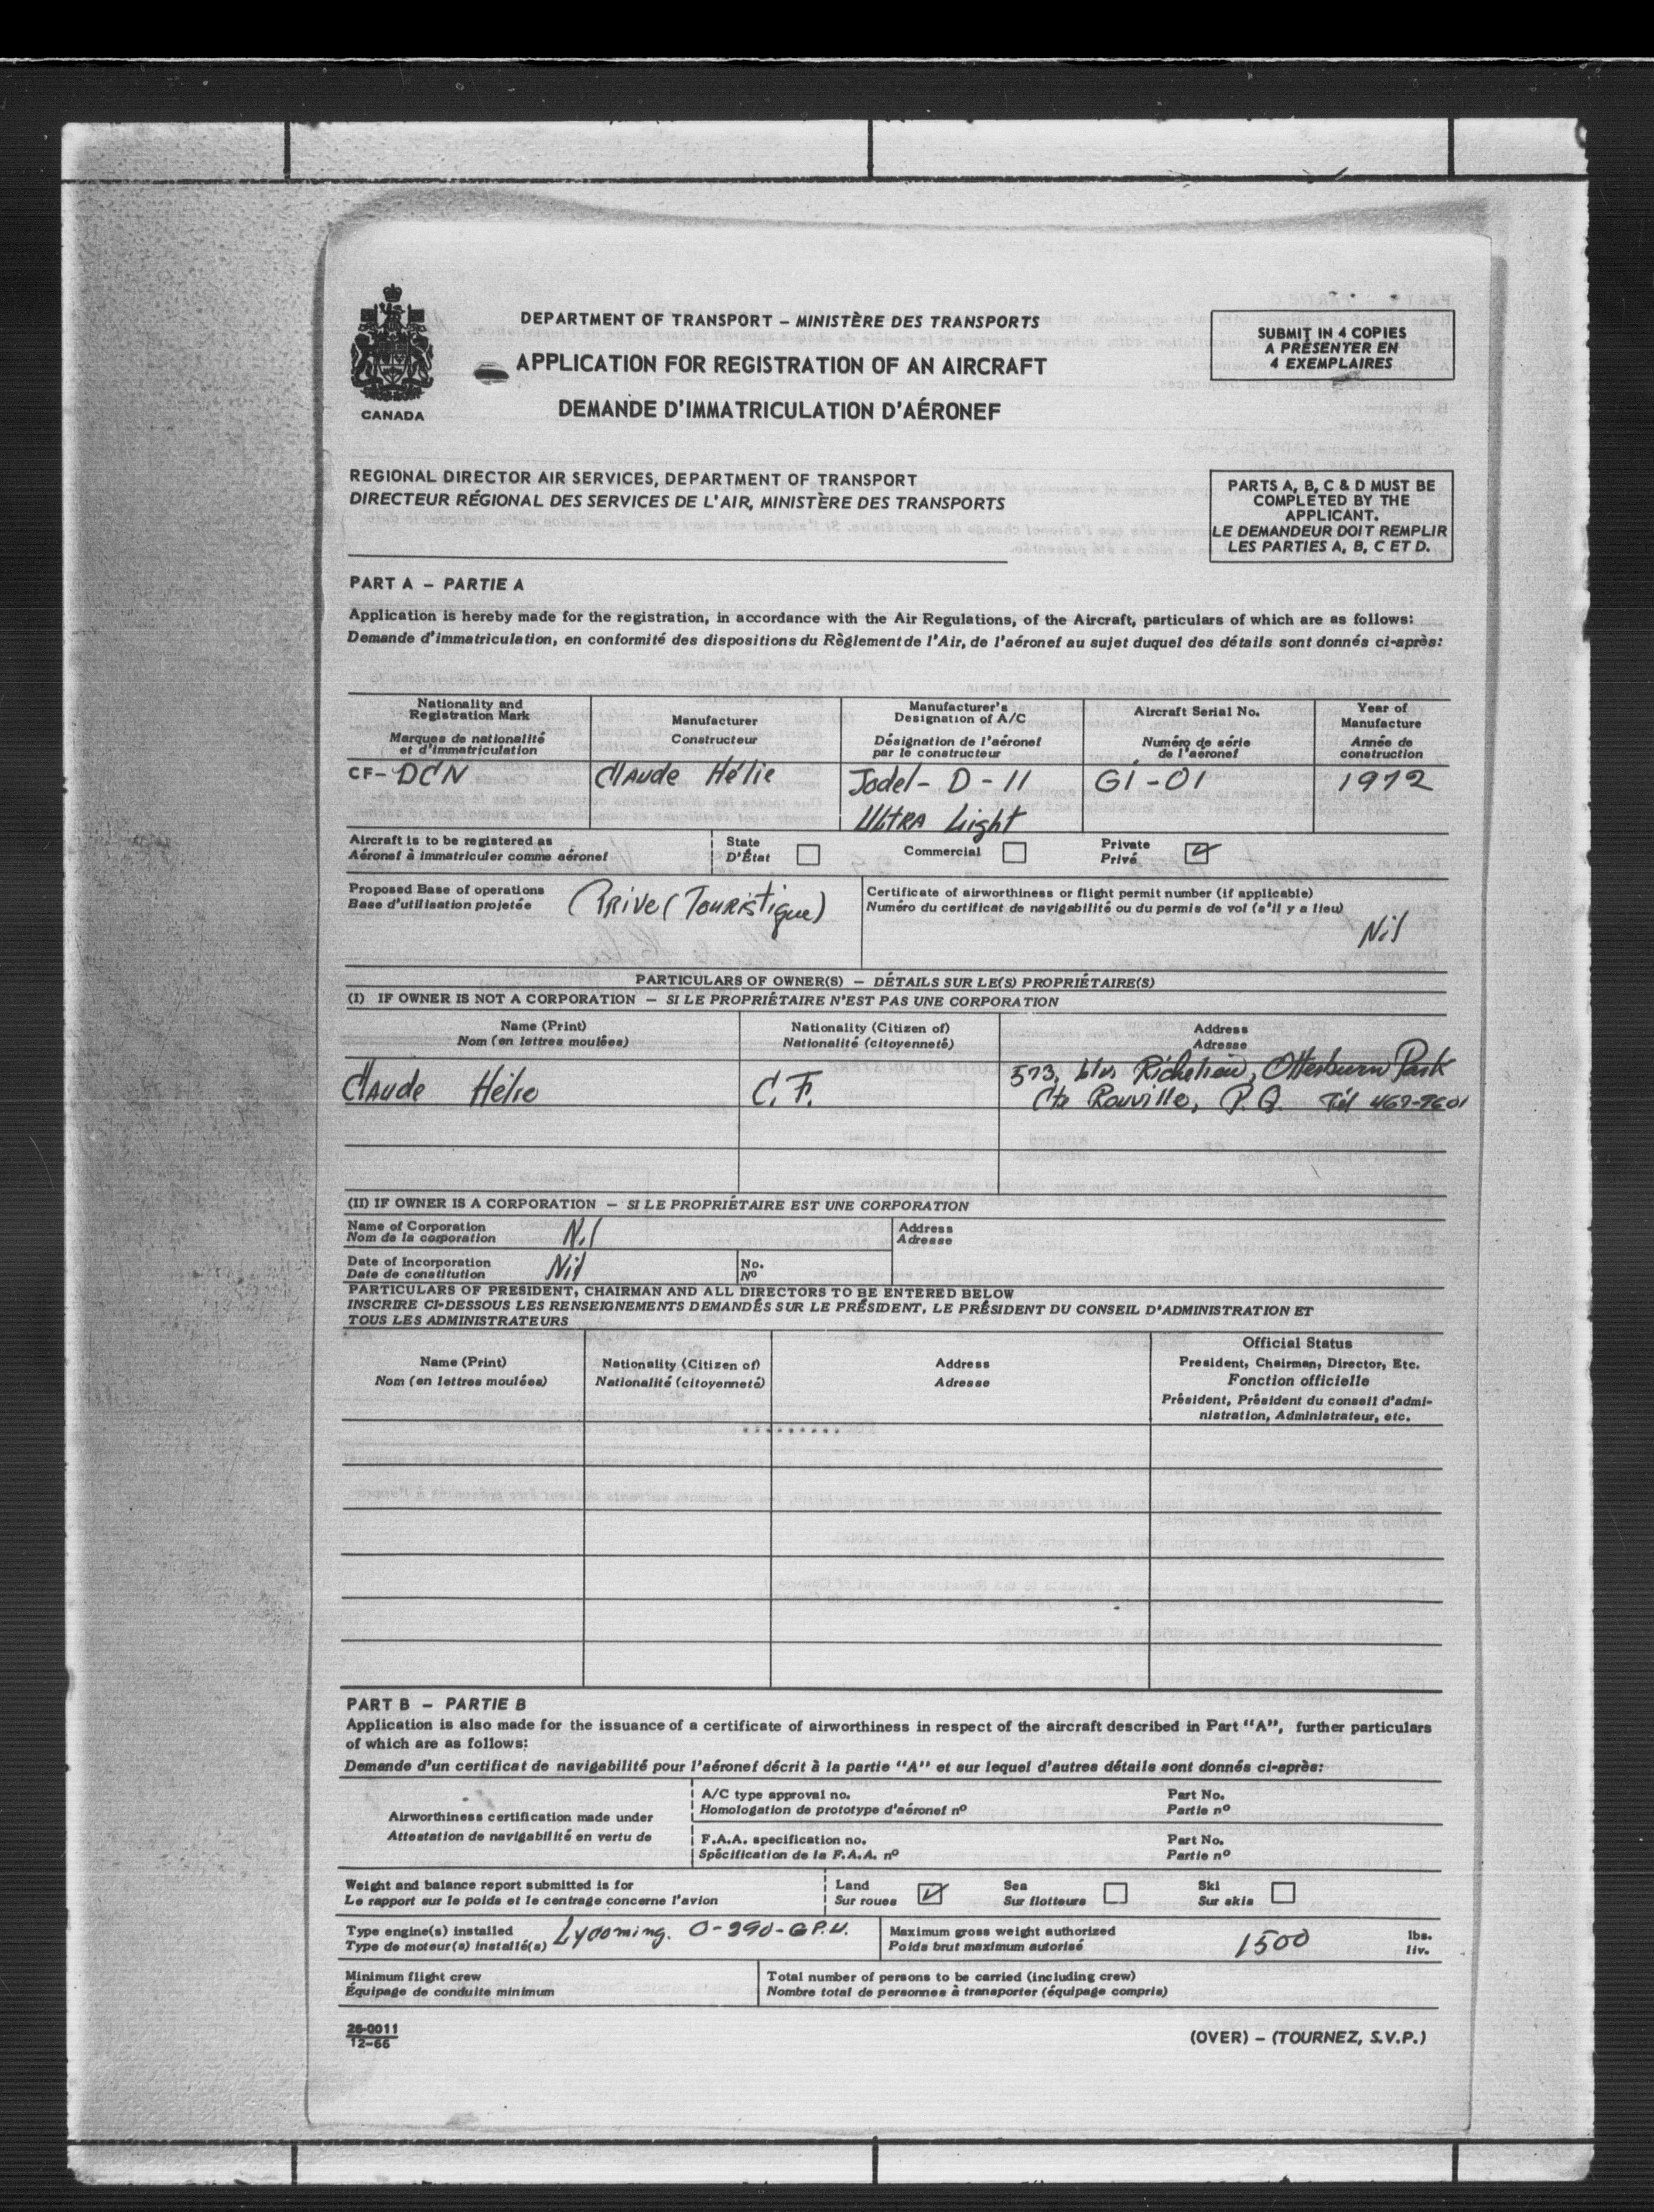 DEPARTMENT OF TRANSPORT – MINISTÈRE DES TRANSPORTS
APPLICATION FOR REGISTRATION OF AN AIRCRAFT
DEMANDE D'IMMATRICULATION D'AÉRONEF
CANADA
SUBMIT IN 4 COPIES
A PRÉSENTER EN
4 EXEMPLAIRES
REGIONAL DIRECTOR AIR SERVICES, DEPARTMENT OF TRANSPORT
DIRECTEUR RÉGIONAL DES SERVICES DE L'AIR, MINISTÈRE DES TRANSPORTS
PARTS A, B, C & D MUST BE
COMPLETED BY THE
APPLICANT.
LE DEMANDEUR DOIT REMPLIR
LES PARTIES A, B, C ET D.
PART A – PARTIE A
Application is hereby made for the registration, in accordance with the Air Regulations, of the Aircraft, particulars of which are as follows:
Demande d'immatriculation, en conformité des dispositions du Règlement de l'Air, de l'aéronef au sujet duquel des détails sont donnés ci-après:
Nationality and
Registration Mark
Marques de nationalité
et d'immatriculation
Manufacturer
Constructeur
Manufacturer's
Designation of A/C
Désignation de l'aéronef
par le constructeur
Aircraft Serial No.
Numéro de série
de l'aéronef
Year of
Manufacture
Année de
construction
CF- DCN
Claude Hélie
Jodel - D - 11
Ultra Light
G1-01
1972
Aircraft is to be registered as
Aéronef à immatriculer comme aéronef
State
D'État
Commercial
Private
Privé
Proposed Base of operations
Base d'utilisation projetée
Privé (Touristique)
Certificate of airworthiness or flight permit number (if applicable)
Numéro du certificat de navigabilité ou du permis de vol (s'il y a lieu)
Nil
PARTICULARS OF OWNER(S) – DÉTAILS SUR LE(S) PROPRIÉTAIRE(S)
(I) IF OWNER IS NOT A CORPORATION – SI LE PROPRIÉTAIRE N'EST PAS UNE CORPORATION
Name (Print)
Nom (en lettres moulées)
Nationality (Citizen of)
Nationalité (citoyenneté)
Address
Adresse
Claude Hélie
C.F.
573, blv. Richelieu, Otterburn Park
Cte Rouville, P.Q. Tél
(II) IF OWNER IS A CORPORATION – SI LE PROPRIÉTAIRE EST UNE CORPORATION
Name of Corporation
Nom de la corporation
Nil
Address
Adresse
Date of Incorporation
Date de constitution
Nil
No.
Nº
PARTICULARS OF PRESIDENT, CHAIRMAN AND ALL DIRECTORS TO BE ENTERED BELOW
INSCRIRE CI-DESSOUS LES RENSEIGNEMENTS DEMANDÉS SUR LE PRÉSIDENT, LE PRÉSIDENT DU CONSEIL D'ADMINISTRATION ET
TOUS LES ADMINISTRATEURS
Name (Print)
Nom (en lettres moulées)
Nationality (Citizen of)
Nationalité (citoyenneté)
Address
Adresse
Official Status
President, Chairman, Director, Etc.
Fonction officielle
Président, Président du conseil d'admi-
nistration, Administrateur, etc.
PART B – PARTIE B
Application is also made for the issuance of a certificate of airworthiness in respect of the aircraft described in Part "A", further particulars
of which are as follows:
Demande d'un certificat de navigabilité pour l'aéronef décrit à la partie "A" et sur lequel d'autres détails sont donnés ci-après:
Airworthiness certification made under
Attestation de navigabilité en vertu de
A/C type approval no.
Homologation de prototype d'aéronef nº
Part No.
Partie nº
F.A.A. specification no.
Spécification de la F.A.A. nº
Part No.
Partie nº
Weight and balance report submitted is for
Le rapport sur le poids et le centrage concerne l'avion
Land
Sur roues
Sea
Sur flotteurs
Ski
Sur skis
Type engine(s) installed
Type de moteur(s) installé(s)
Lycoming. O-290-G P.U.
Maximum gross weight authorized
Poids brut maximum autorisé
1500
lbs.
liv.
Minimum flight crew
Équipage de conduite minimum
Total number of persons to be carried (including crew)
Nombre total de personnes à transporter (équipage compris)
26-0011
12-66
(OVER) – (TOURNEZ, S.V.P.)